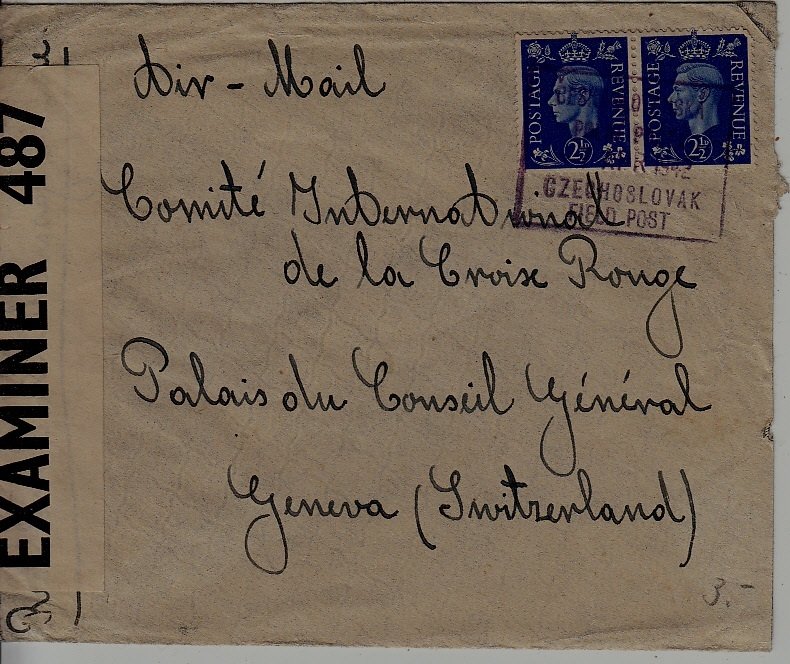 Air-Mail
POSTAGE REVENUE 2½D
POSTAGE REVENUE 2½D
1942
CZECHOSLOVAK
FIELD POST
Comité International
de la Croix Rouge
Palais du Conseil Général
Geneva (Switzerland)
EXAMINER 487
3.-